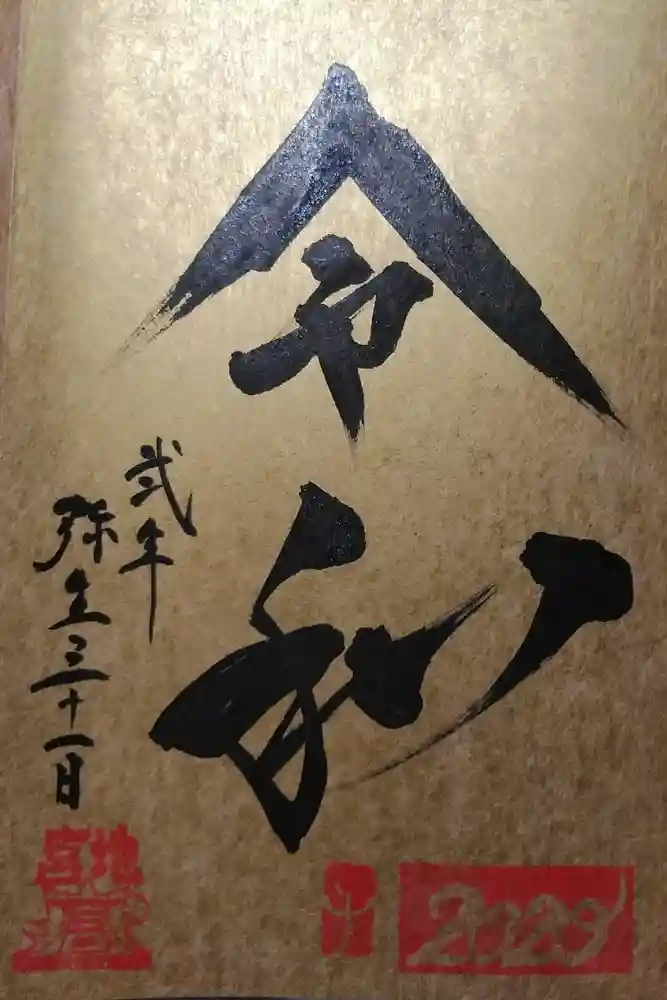 令和
弐年
弥生三十一日
2020